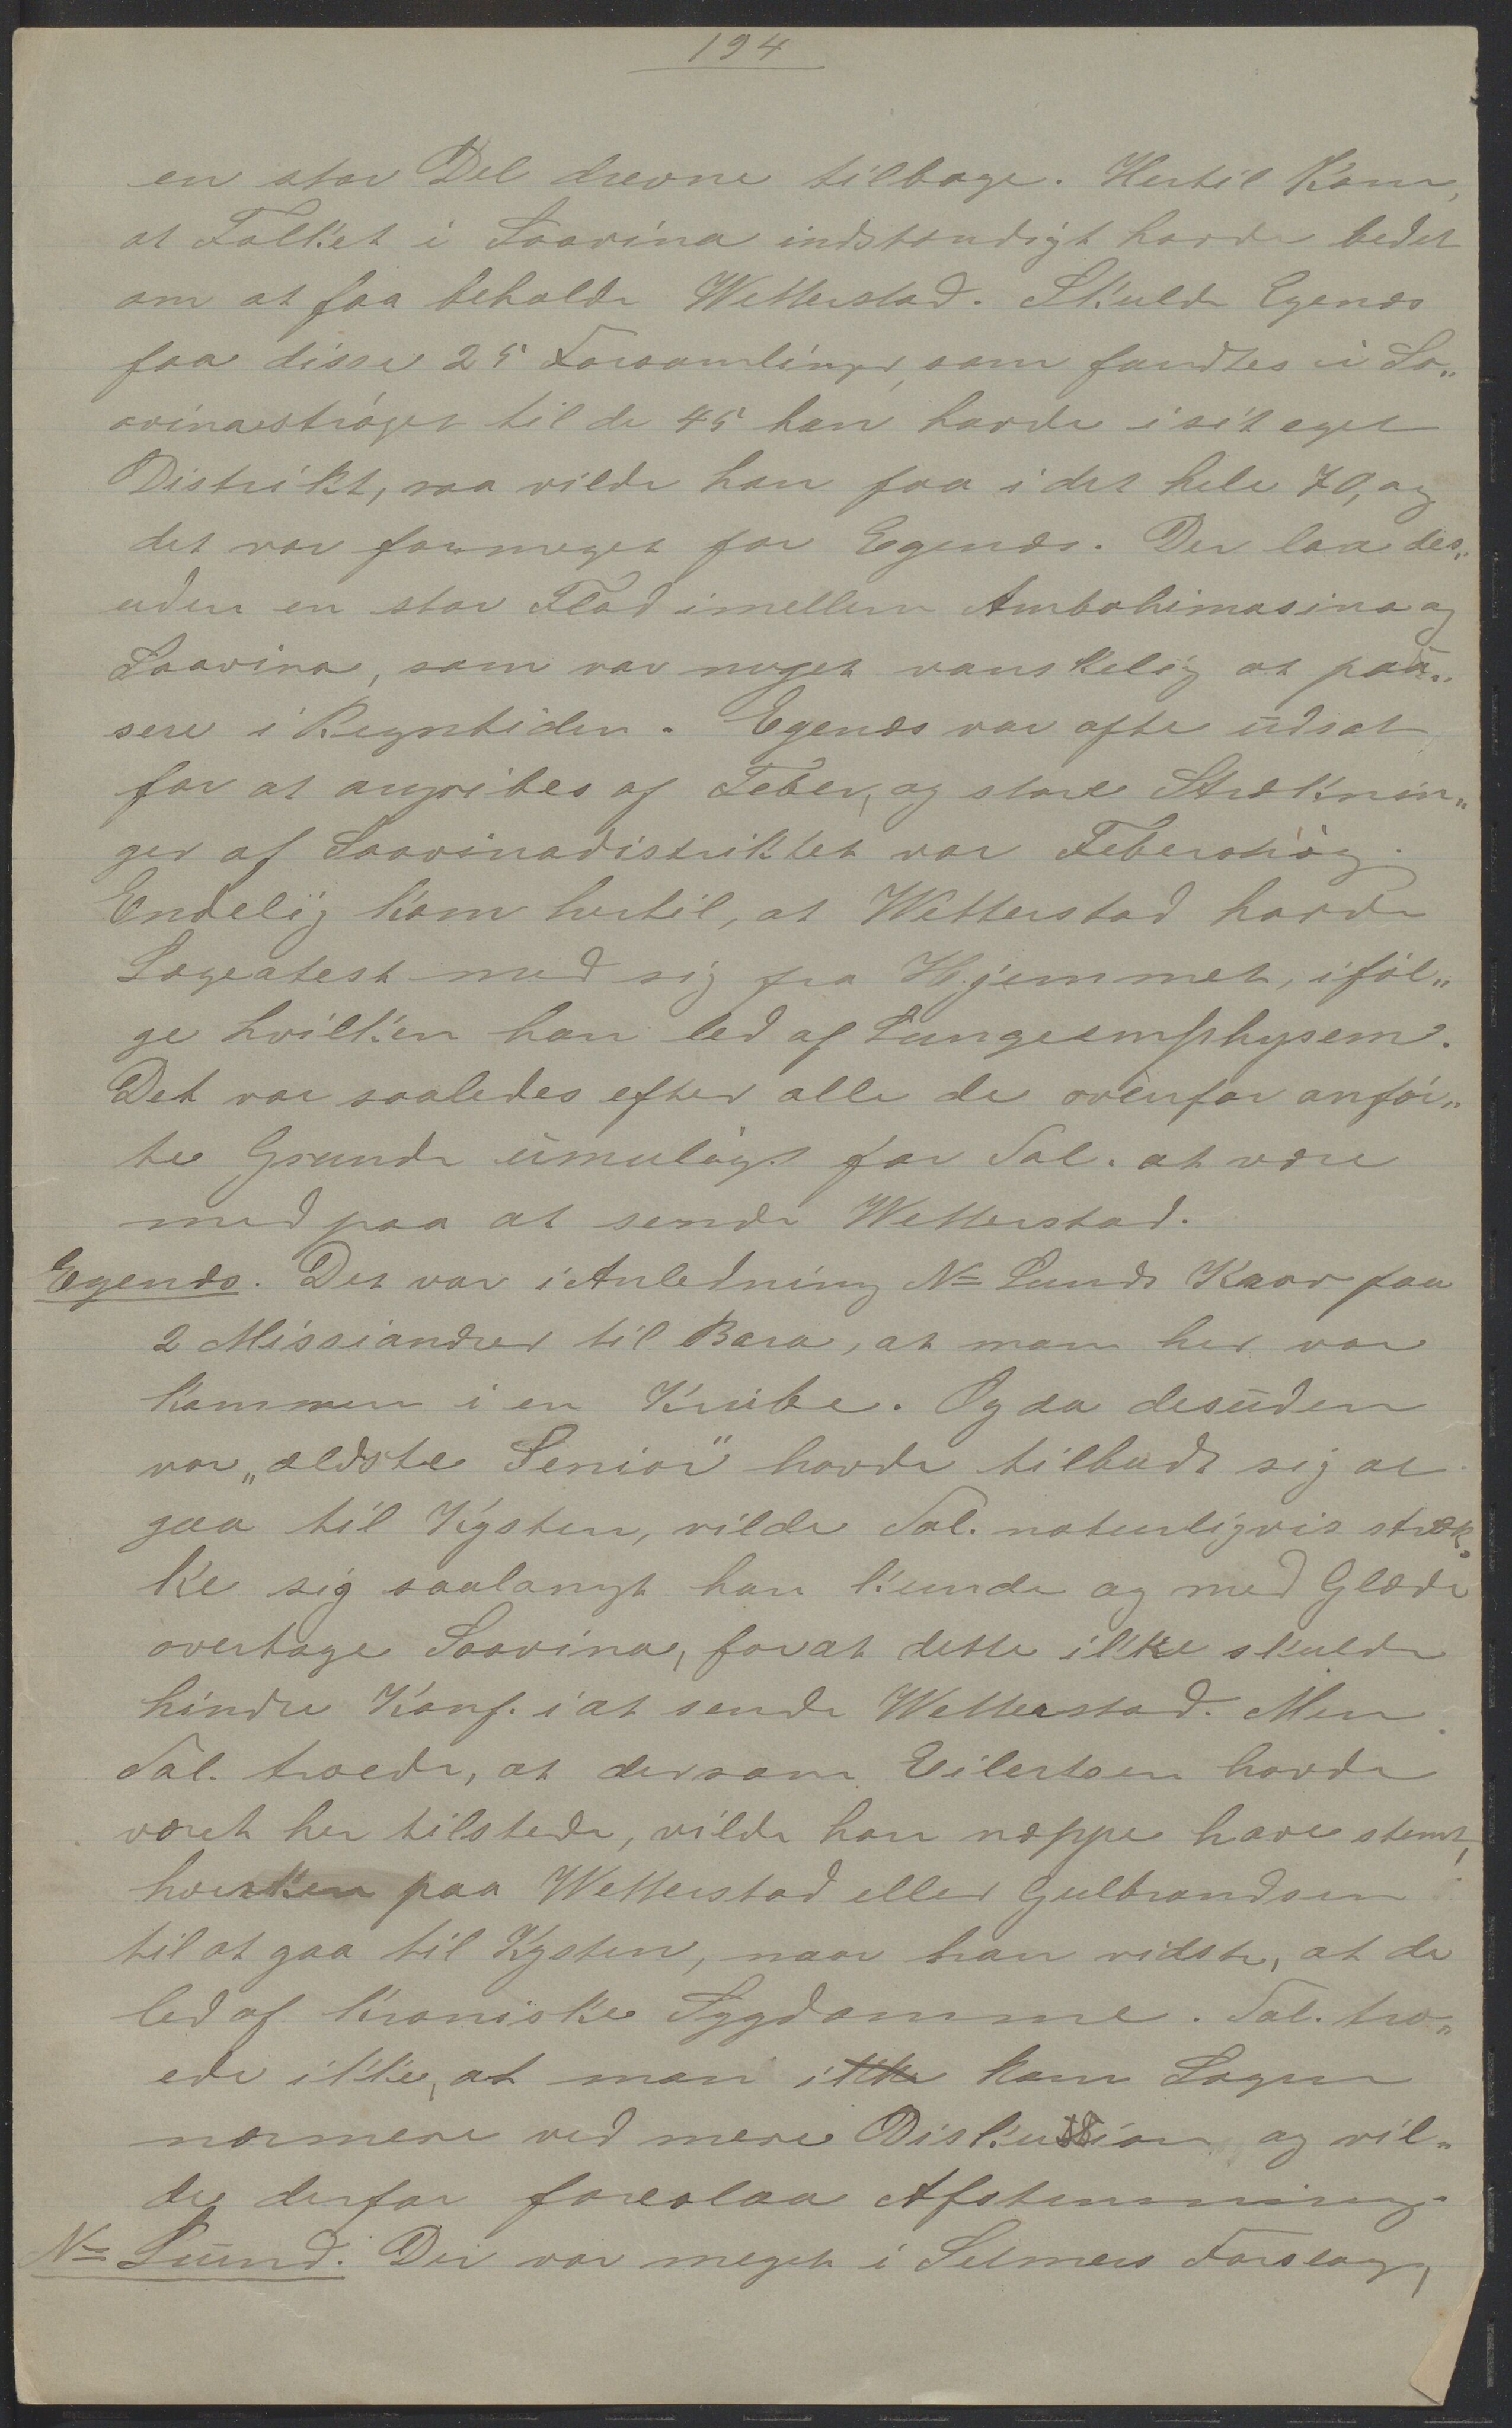 194
en stor Del drevne tilbage. Hertil Kom,
at Folket i Soavina indstændigt havde bedet
om at faa beholde Wetterstad. Skulde Egenæs
faa disse 25 Forsamlinger, som fandtes i So„
avinastrøget til de 45 han havde i sit eget
Distrikt, saa vilde han faa i det hele 70, og
det var formeget for Egenæs. Der laa des„
uden en stor Flod imellem Ambohimasina og
Soavina, som var meget vanskelig at pas„
sere i Regntiden. Egenæs var ofte udsat
for at angribes af Feber, og store Stræknin„
ger af Soavinadistriktet var Feberstrøg.
Endelig kom hertil, at Wetterstad havde
Lægeatest med sig fra Hjemmet, iføl„
ge hvilken han led af Lungeemphysem.
Det var saaledes efter alle de ovenfor anfør„
te Grunde umuligt for Tal. at være
med paa at sende Wetterstad.
Egenæs. Det var i Anledning N= Lunds Krav paa
2 Missionærer til Bara, at man her var
kommen i en Knibe. Og da desuden
vor „ældste Senior" havde tilbudt sig at
gaa til Kysten, vilde Tal. naturligvis stræk„
ke sig saalangt han kunde og med Glæde
overtage Soavina, forat dette ikke skulde
hindre Konf. i at sende Wetterstad. Men
Tal. troede, at dersom Eilertsen havde
været her tilstede, vilde han neppe have stemt,
hverken paa Wetterstad eller Gulbrandsen
til at gaa til Kysten, naar han vidste, at de
led af kroniske Sygdomme. Tal. tro„
ede ikke, at man ikke kom Sagen
nærmere ved mere Diskussion og vil„
de derfor foreslaa Afstemning.
N= Lund. Der var meget i Selmers Forslag,